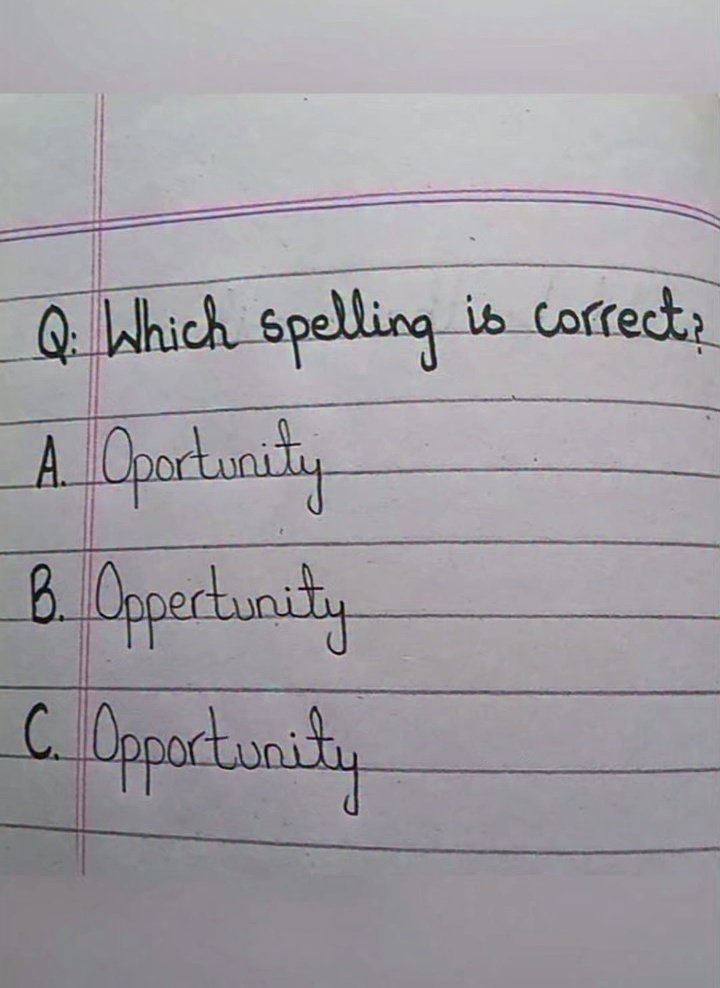 Q: Which spelling is correct?
A. Oportunity
B. Oppertunity
C. Opportunity